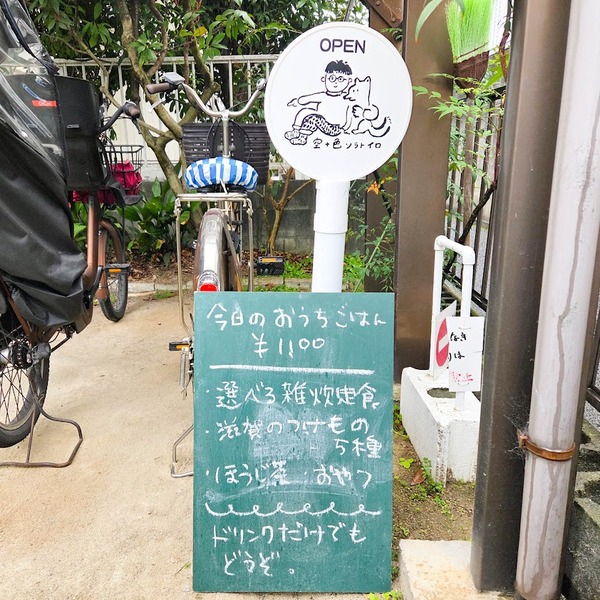 OPEN
空+色 ソラトイロ
今日のおうちごはん
¥1,100
・選べる雑炊定食
・滋賀のつけもの
5種
・ほうじ茶・おやつ
ドリンクだけでも
どうぞ。